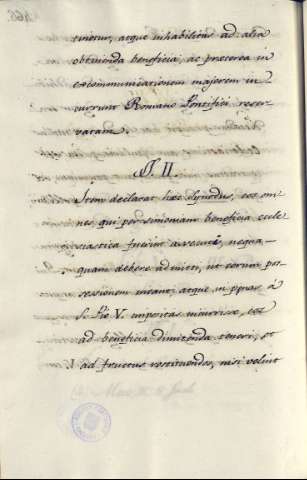 tivetur, atque inhabilitas ad alia
obtinenda beneficia, ac præterea in
excommunicationem majorem in
currunt Romano Pontifici reser
vatam.
§. II.
Item declarat hæc Synodus, eos om
nes, qui per simoniam beneficia eccle
siastica fuerint assecuti, nequa-
quam debere admitti, ut eorum pos
sessionem ineant, atque in pœnas à
S. Pio V. impositas incurrisse, eos
ad beneficia dimittenda teneri, et
ad fructus restituendos, nisi velint